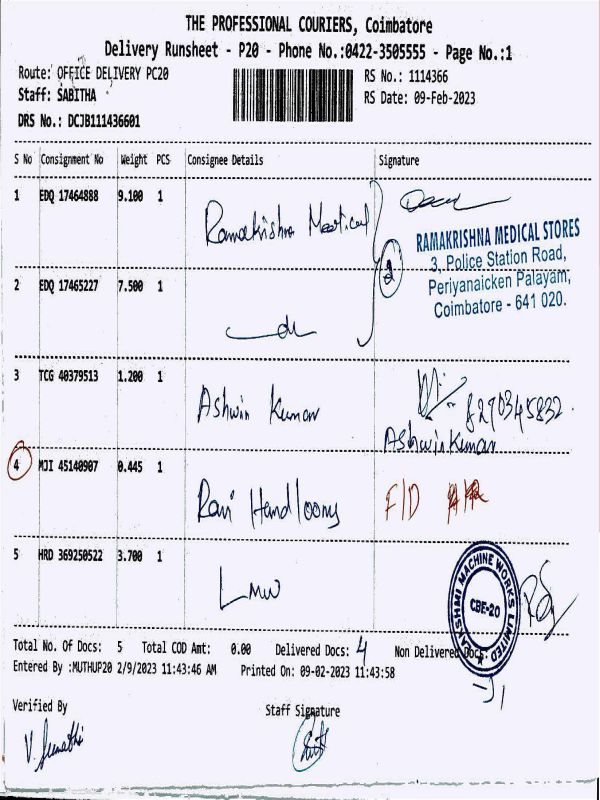 THE PROFESSIONAL COURIERS, Coimbatore
Delivery Runsheet - P20 - Phone No.:0422-3505555 - Page No.:1
Route: OFFICE DELIVERY PC20 RS No.: 1114366
Staff: SABITHA RS Date: 09-Feb-2023
DRS No.: DCJB111436601
S No Consignment No Weight PCS Consignee Details Signature
1 EDQ 17464888 9.100 1 Ramakrishna Medical
RAMAKRISHNA MEDICAL STORES
3, Police Station Road,
Periyanaicken Palayam,
Coimbatore - 641 020.
2
2 EDQ 17465227 7.500 1 do
3 TCG 40379513 1.200 1 Ashwin Kumar 8270345832.
Ashwin Kumar
4 MJI 45140907 0.445 1 Ravi Handlooms F/D
5 HRD 369250522 3.700 1 LMW
LAKSHMI MACHINE WORKS LIMITED
CBE-20
Total No. Of Docs: 5 Total COD Amt: 0.00 Delivered Docs: 4 Non Delivered Docs:
Entered By :MUTHUP20 2/9/2023 11:43:46 AM Printed On: 09-02-2023 11:43:58
Verified By Staff Signature